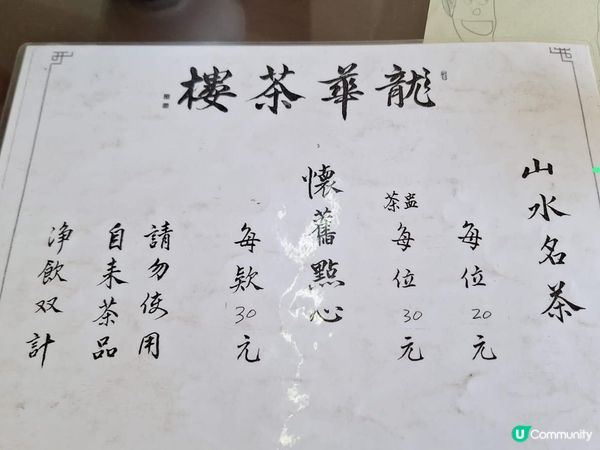 龍華茶樓
山水名茶
每位20元
茶盅
每位30元
懷舊點心
每欵30元
請勿使用
自来茶品
净飲双計
U Community